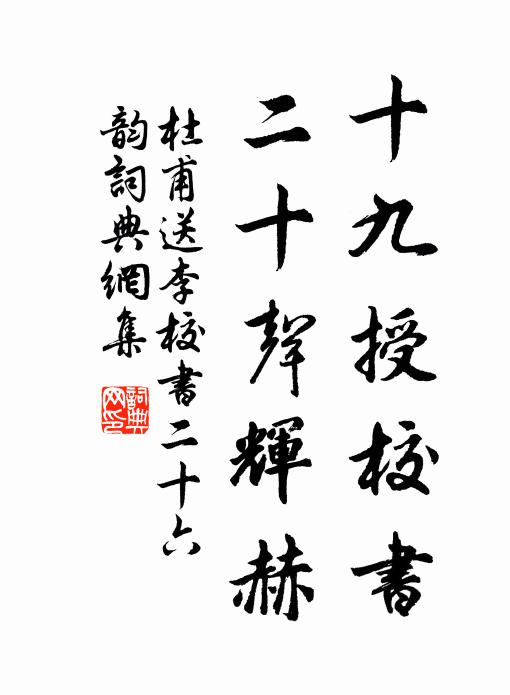 十九授校書
二十聲輝赫
杜甫送李校書二十六
韵詞典網集
詞典
网印